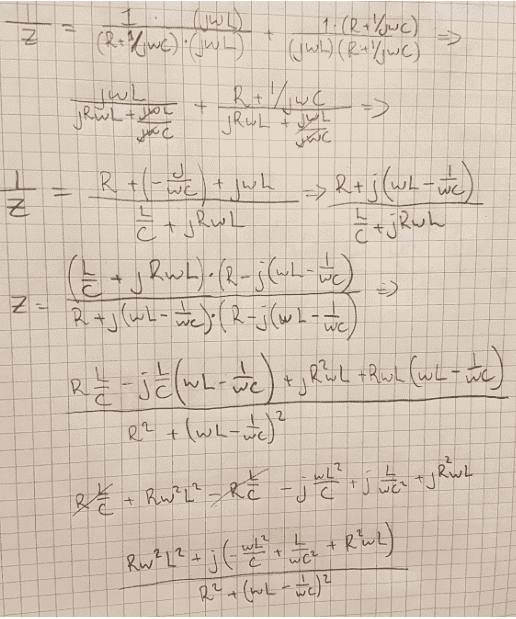 1/Z = 1·(jwL)/((R+1/jwC)·(jwL)) + 1·(R+1/jwC)/((jwL)(R+1/jwC)) =>
jwL/(jRwL + jwL/jwC) + (R+1/jwC)/(jRwL + jwL/jwC) =>
1/Z = (R + (-j/wC) + jwL)/(L/C + jRwL) => (R + j(wL - 1/wC))/(L/C + jRwL)
Z = ((L/C + jRwL)·(R - j(wL - 1/wC))/(R + j(wL - 1/wC)·(R - j(wL - 1/wC)) =>
(R L/C - j L/C (wL - 1/wC) + jR²wL + RwL (wL - 1/wC))/(R² + (wL - 1/wC)²)
R L/C + Rw²L² - R L/C - j wL²/C + j L/wC² + jR²wL
(Rw²L² + j(-wL²/C + L/wC² + R²wL))/(R² + (wL - 1/wC)²)